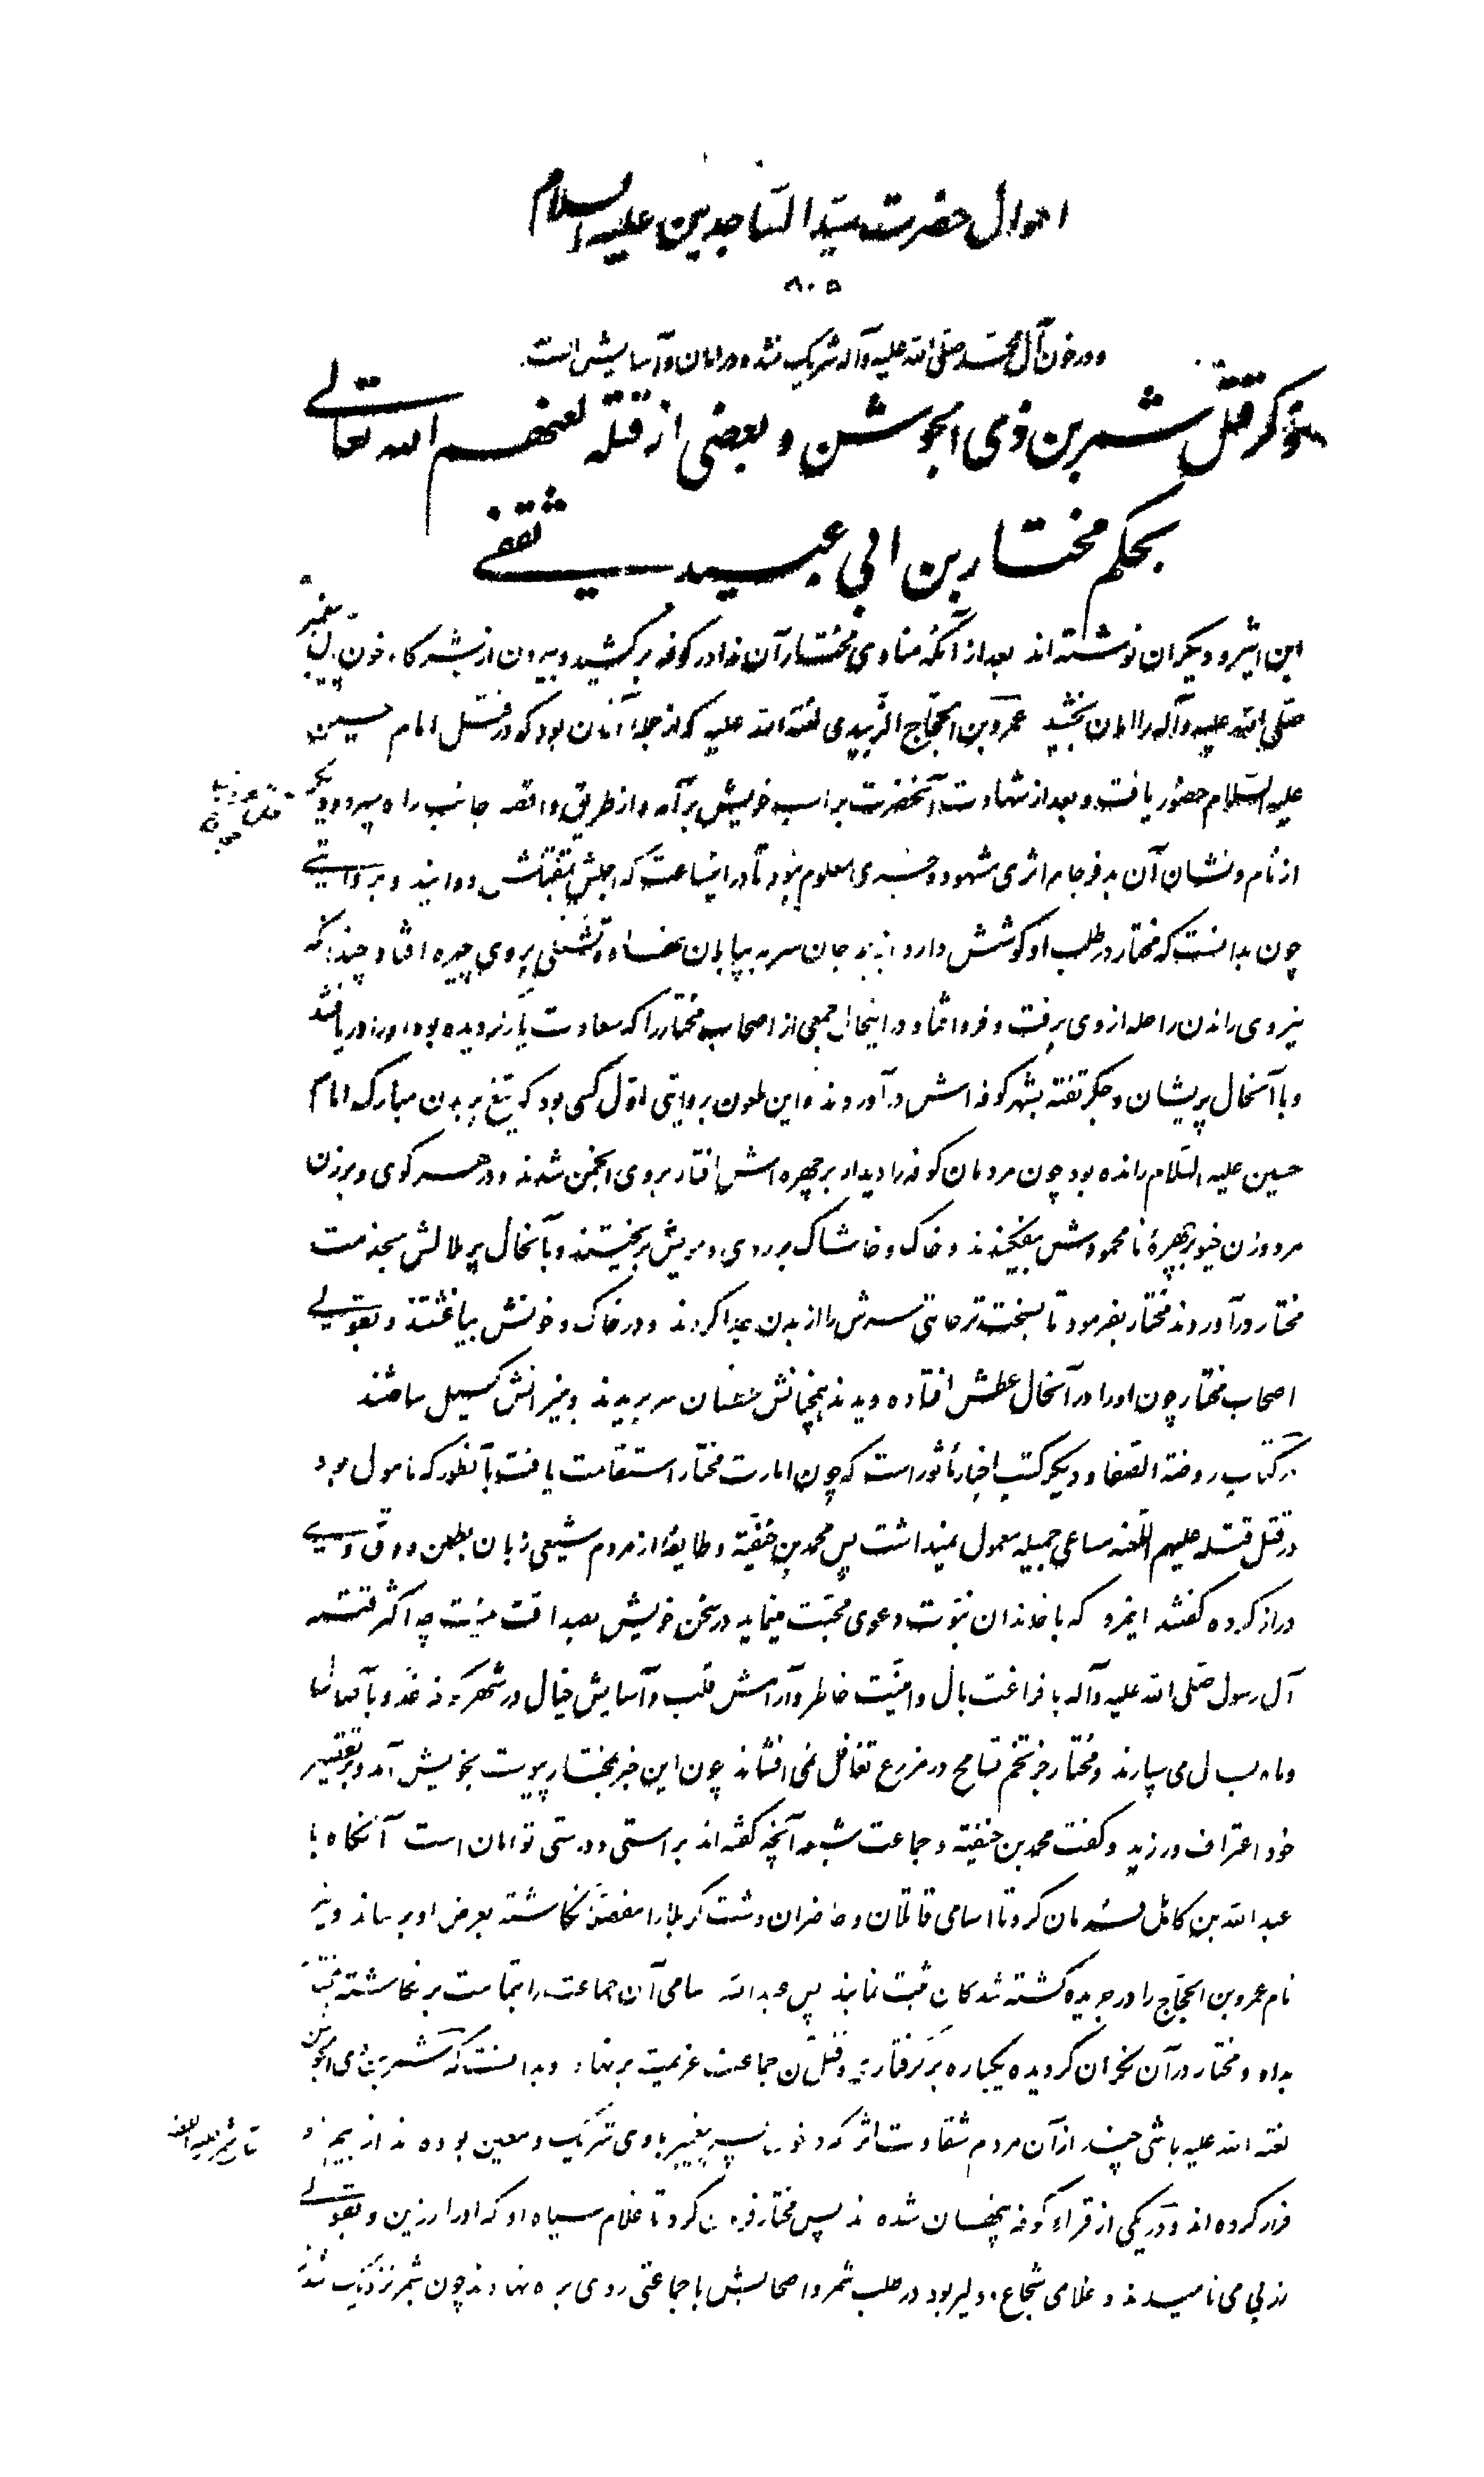 احوال حضرت سیّد السّاجدین علیه السلام
۸۰۵
و در خون آل محمّد صلّی الله علیه و آله شریک نشده در امان و آسایش است
ذکر قتل شمر بن ذی الجوشن و بعضی از قتله لعنهم الله تعالی
بحکم مختار بن ابی عبید ثقفی
ابن اثیر و دیگران نوشته‌اند بعد از آنکه منادی مختار آن ندا در کوفه برکشید و بیرون از شرکاء خون پیغمبر
صلّی الله علیه و آله را امان بخشید عمرو بن الحجّاج الزّبیدی لعنة الله علیه که از جمله آنان بود که در قتل امام حسین
علیه السّلام حضور یافت و بعد از شهادت آنحضرت بر اسب خویش برآمد و از طریق واقصه جانب راه سپرد و دیگر
از نام و نشان آن بدفرجام اثری مشهود و خبری معلوم نبود تا در اینساعت که اجلش دوانید و بروایتی
چون بدانست که مختار در طلب او کوشش دارد از بیم جان سر به بیابان نهاد و تشنگی بروی چیره افتاد چندانکه
نیروی راندن راحله از وی برفت و فرو افتاد در اینحال جمعی از اصحاب مختار را که سعادت یار گردیده بود او را دریافتند
و با آنحال پریشان و جگر تفته بشهر کوفه‌اش در آوردند و این ملعون بروایتی اوّل کسی بود که تیغ بر بدن مبارک امام
حسین علیه السّلام رانده بود چون مردمان کوفه را دیدار بر چهره‌اش افتاد بروی انجمن شدند و در هر کوی و برزن
مرد و زن خیو بر چهرهٔ نامحمودش بیفکندند و خاک و خاشاک بر روی و مویش بریختند و با آنحال پر ملالش بخدمت
مختار در آوردند مختار بفرمود تا بسخت‌تر حالتی سرش را از بدن جدا کردند و در خاک و خونش بیاغشتند و بقولی
اصحاب مختار چون او را در آنحال عطش افتاده دیدند همچنانش عطشان سر بریدند و بنیرانش گسیل ساختند
در کتاب روضة الصّفا و دیگر کتب اخبار مأثور است که چون امارت مختار استقامت یافت و بآنطور که مأمول بود
در قتل قتله علیهم اللّعنه مساعی جمیله معمول نمیداشت پس محمد بن حنفیّه و طایفهٔ از مردم شیعی زبان بطعن و دقّ وی
دراز کرده گفتند اینمرد که با خاندان نبوّت دعوی محبّت مینماید در سخن خویش بصداقت نیست چه اکثر قتله
آل رسول صلّی الله علیه و آله با فراغت بال و امنیّت خاطر و آرامش قلب و آسایش خیال در شهر کوفه
و ماه بسال می سپارند و مختار جز تخم تسامح در مزرع تغافل نمی افشاند چون این خبر بمختار پیوست بخویش آمد و بر تقصیر
خود اعتراف ورزید و گفت محمد بن حنفیّه و جماعت شیعه آنچه گفته‌اند براستی و درستی توامان است آنگاه با
عبد الله بن کامل فرمان کرد تا اسامی قاتلان و حاضران دشت کربلا را مفصّلاً نگاشته بعرض او برساند و نیز
نام عمرو بن الحجّاج را در جریده کشته شدگان ثبت نمایند پس عبد الله اسامی آن جماعت را بتمامت بر نگاشته
بداد و مختار در آن نگران گردیده یکباره بر گرفتاری و قتل آن جماعت عزیمت بر نهاد و بدانست که شمر بن ذی الجوشن
لعنة الله علیه با تنی چند از آن مردم شقاوت اثر که در خون پسر پیغمبر با وی شریک و معین بوده‌اند از بیم او
فرار کرده‌اند و در یکی از قراء کوفه پنهان شده‌اند پس مختار فرمان کرد تا غلام سیاه او که او را رزین و بقولی
زربی می نامیدند و غلامی شجاع و دلیر بود در طلب شمر و اصحابش با جماعتی روی بره نهادند چون شمر نزدیک شد
قتل شمر علیه اللعنه